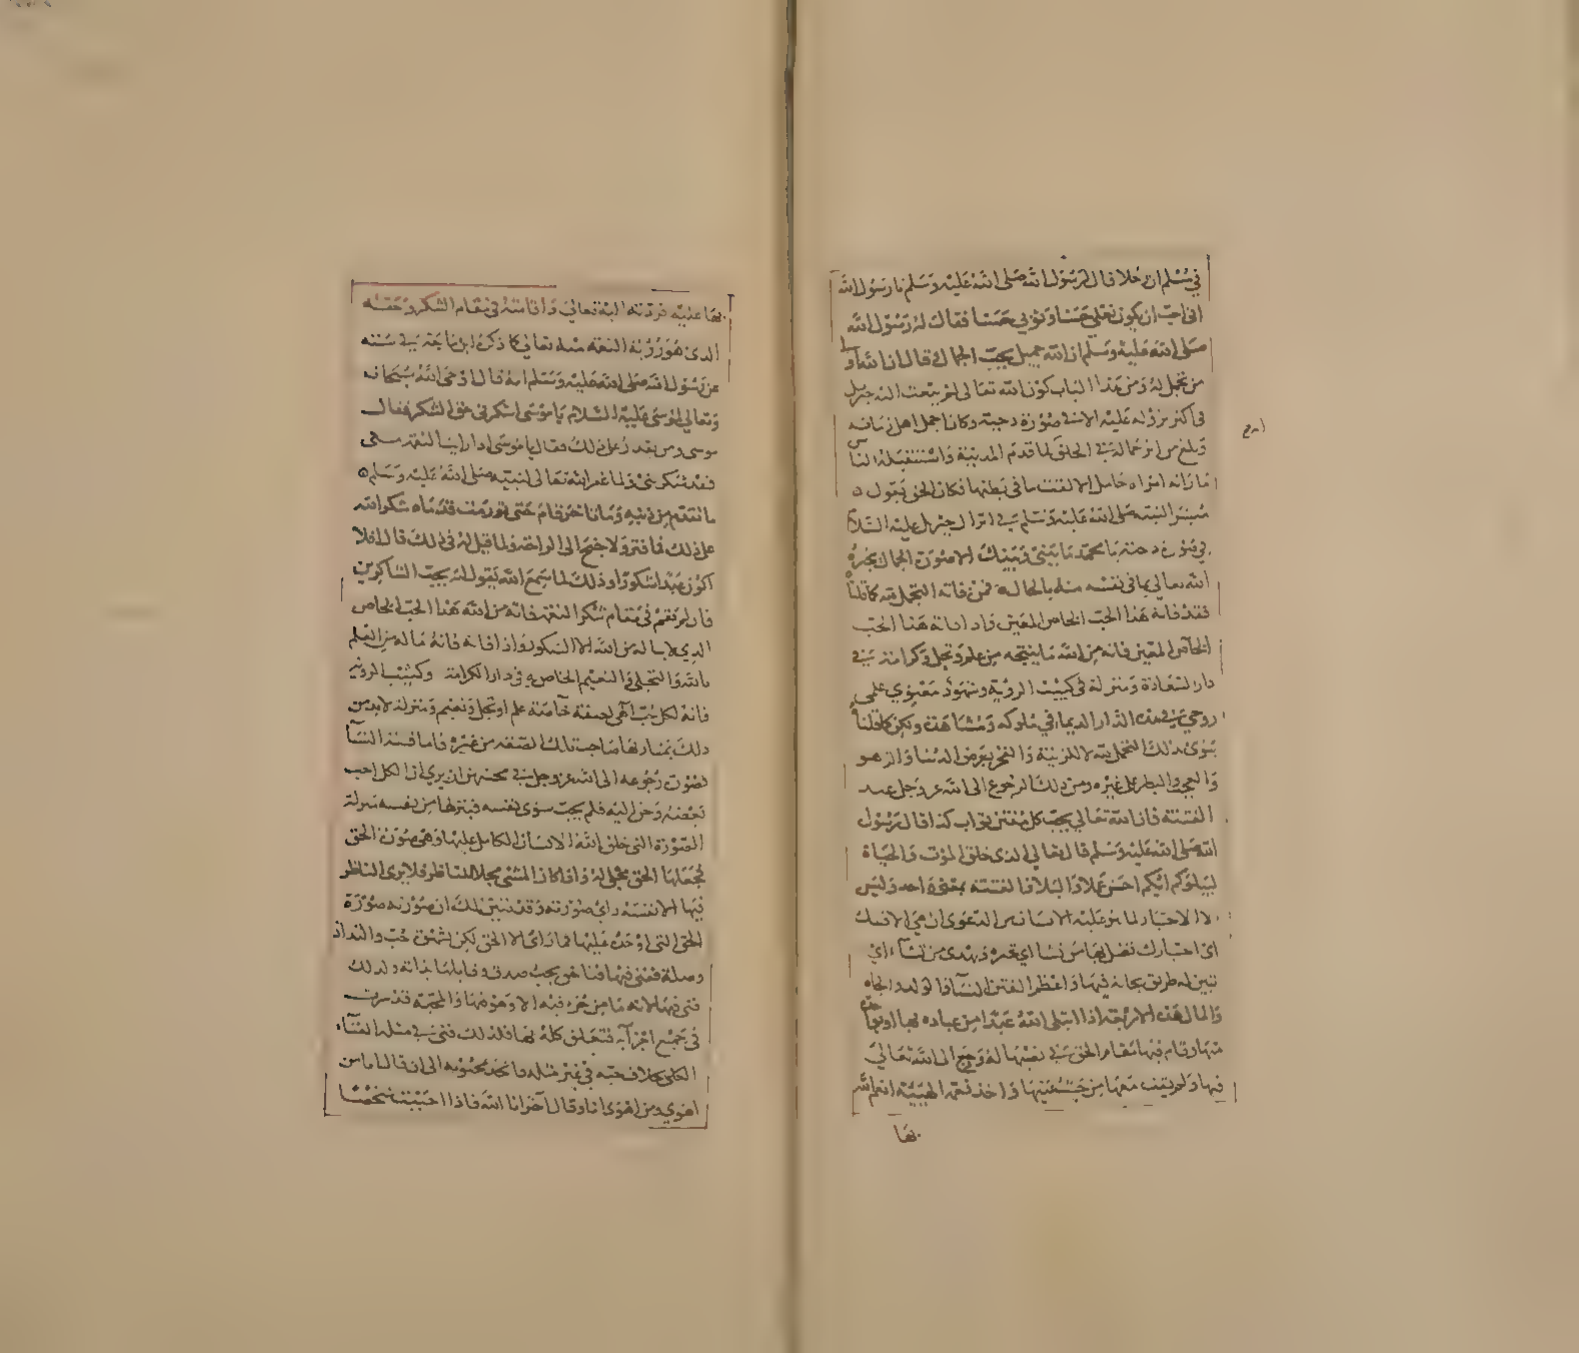 في مسلم ان رجلا قال لرسول الله صلى الله عليه وسلم يا رسول الله
انى احب ان يكون نعلي حسنا وثوبي حسنا فقال له رسول الله
صلى الله عليه وسلم ان الله جميل يحب الجمال وقال ان الله اولى
من تجمل له ومن هذا الباب كون الله تعالى لم يبعث اليه جبريل
في اكثر نزوله عليه الا في صورة دحية وكان اجمل اهل زمانه
وبلغ من اثر جماله في الخلق لما قدم المدينة واستقبله الناس
ما راته امراة حامل الا القت ما في بطنها فكان الحق يقول
مبشرا لنبيه صلى الله عليه وسلم في انزال جبريل عليه السلام
في صورة دحية يا محمد ما بيني وبينك الا صورة الجمال يخبره
الله تعالى بما في نفسه منه بالحال فمن فاته التجمل لله كما قلنا
فقد فاته هذا الحب الخاص المعين واذا فاته هذا الحب
الخاص المعين فاته من الله ما ينتجه من علم وتجل وكرامة في
دار السعادة ومنزلة في كثيب الرؤية وشهود معنوي علمي
روحي في هذه الدار الدنيا في سلوكه ومشاهده ولكن كما قلنا
ينوى بذلك التجمل لله لا للزينة والفخر بعرض الدنيا والزهو
والعجب والبطر على غيره ومن ذلك الرجوع الى الله عز وجل عند
الفتنة فان الله تعالى يحب كل مفتن تواب كذا قال رسول
الله صلى الله عليه وسلم قال تعالى الذى خلق الموت والحياة
ليبلوكم ايكم احسن عملا والبلا والفتنة بمعنى واحد وليس
الا الاختبار لما هو عليه الانسان من الدعوى ان هي الا فتنتك
اى اختبارك تضل بها من تشا اي تحيره وتهدى من تشاء اي
تبين له طريق نجاته فيها واعظم الفتن النساء والولد والجاه
والمال هذه الاربعة اذا ابتلى الله عبدا من عباده بها او بواحد
منها وقام فيها مقام الحق في نصبها له ورجع الى الله تعالى
فيها ولم يقف معها من حيث عينها واخذ نعمة الهية انعم الله
بها
بها عليه فردته اليه تعالى واقامته في مقام الشكر وحقه
الذى هو رؤية النعمة منه تعالى كما ذكره ابن ماجة في سننه
عن رسول الله صلى الله عليه وسلم انه قال اوحى الله سبحانه
وتعالى لموسى عليه السلام يا موسى اشكرني حق الشكر فقال
موسى ومن يقدر على ذلك فقال يا موسى اذا رايت النعمة منى
فقد شكرتنى ولما غفر الله تعالى لنبيه صلى الله عليه وسلم
ما تقدم من ذنبه وما تاخر قام حتى تورمت قدماه شكرا لله
على ذلك فما فتر ولا جنح الى الراحة ولما قيل له في ذلك قال افلا
اكون عبدا شكورا وذلك لما سمع الله يقول الله يحب الشاكرين
فان لم يقم في مقام شكر النعمة فاته من الله هذا الحب الخاص
الذي لا يناله من الله الا الشكور واذا فاته فاته ما له من العلم
بالله والتجلى والنعيم الخاص به في دار الكرامة وكثيب الرؤية
فانه لكل حب الهي لصفة خاصة علم وتجل ونعيم ومنزلة لابد من
ذلك يمتاز بها صاحب تلك الصفة من غيره فاما فتنة النساء
فصورة رجوعه الى الله عز وجل في محبتهن ان يرى ان الكل احب
بعضه وحن اليه فلم يحب سوى نفسه فينزلها من نفسه منزلة
الصورة التى خلق الله الانسان الكامل عليها وهى صورة الحق
فجعلها الحق مجلى له واذا كان الشئ مجلا للناظر فلا يرى الناظر
فيها الا نفسه راى صورته وقد تبين لك ان صورته صورة
الحق التى اوجده عليها فما راى الا الحق لكن لشهوة حب والتذاذ
وصلة ففنى فيها فنا حق بحب صدق وقابلها بذاته ولذلك
فنى فيها لانه ما من جزء فيه الا وهو فيها والمحبة قد سرت
في جميع اجزآيه فتعلق كله بها فلذلك فنى في مثله الفناء
الكلى بخلاف حبه في غير مثله فاتحد بمحبوبه الى ان قال انا من
اهوى ومن اهوى انا وقال آخر انا الله فاذا احببت شخصا